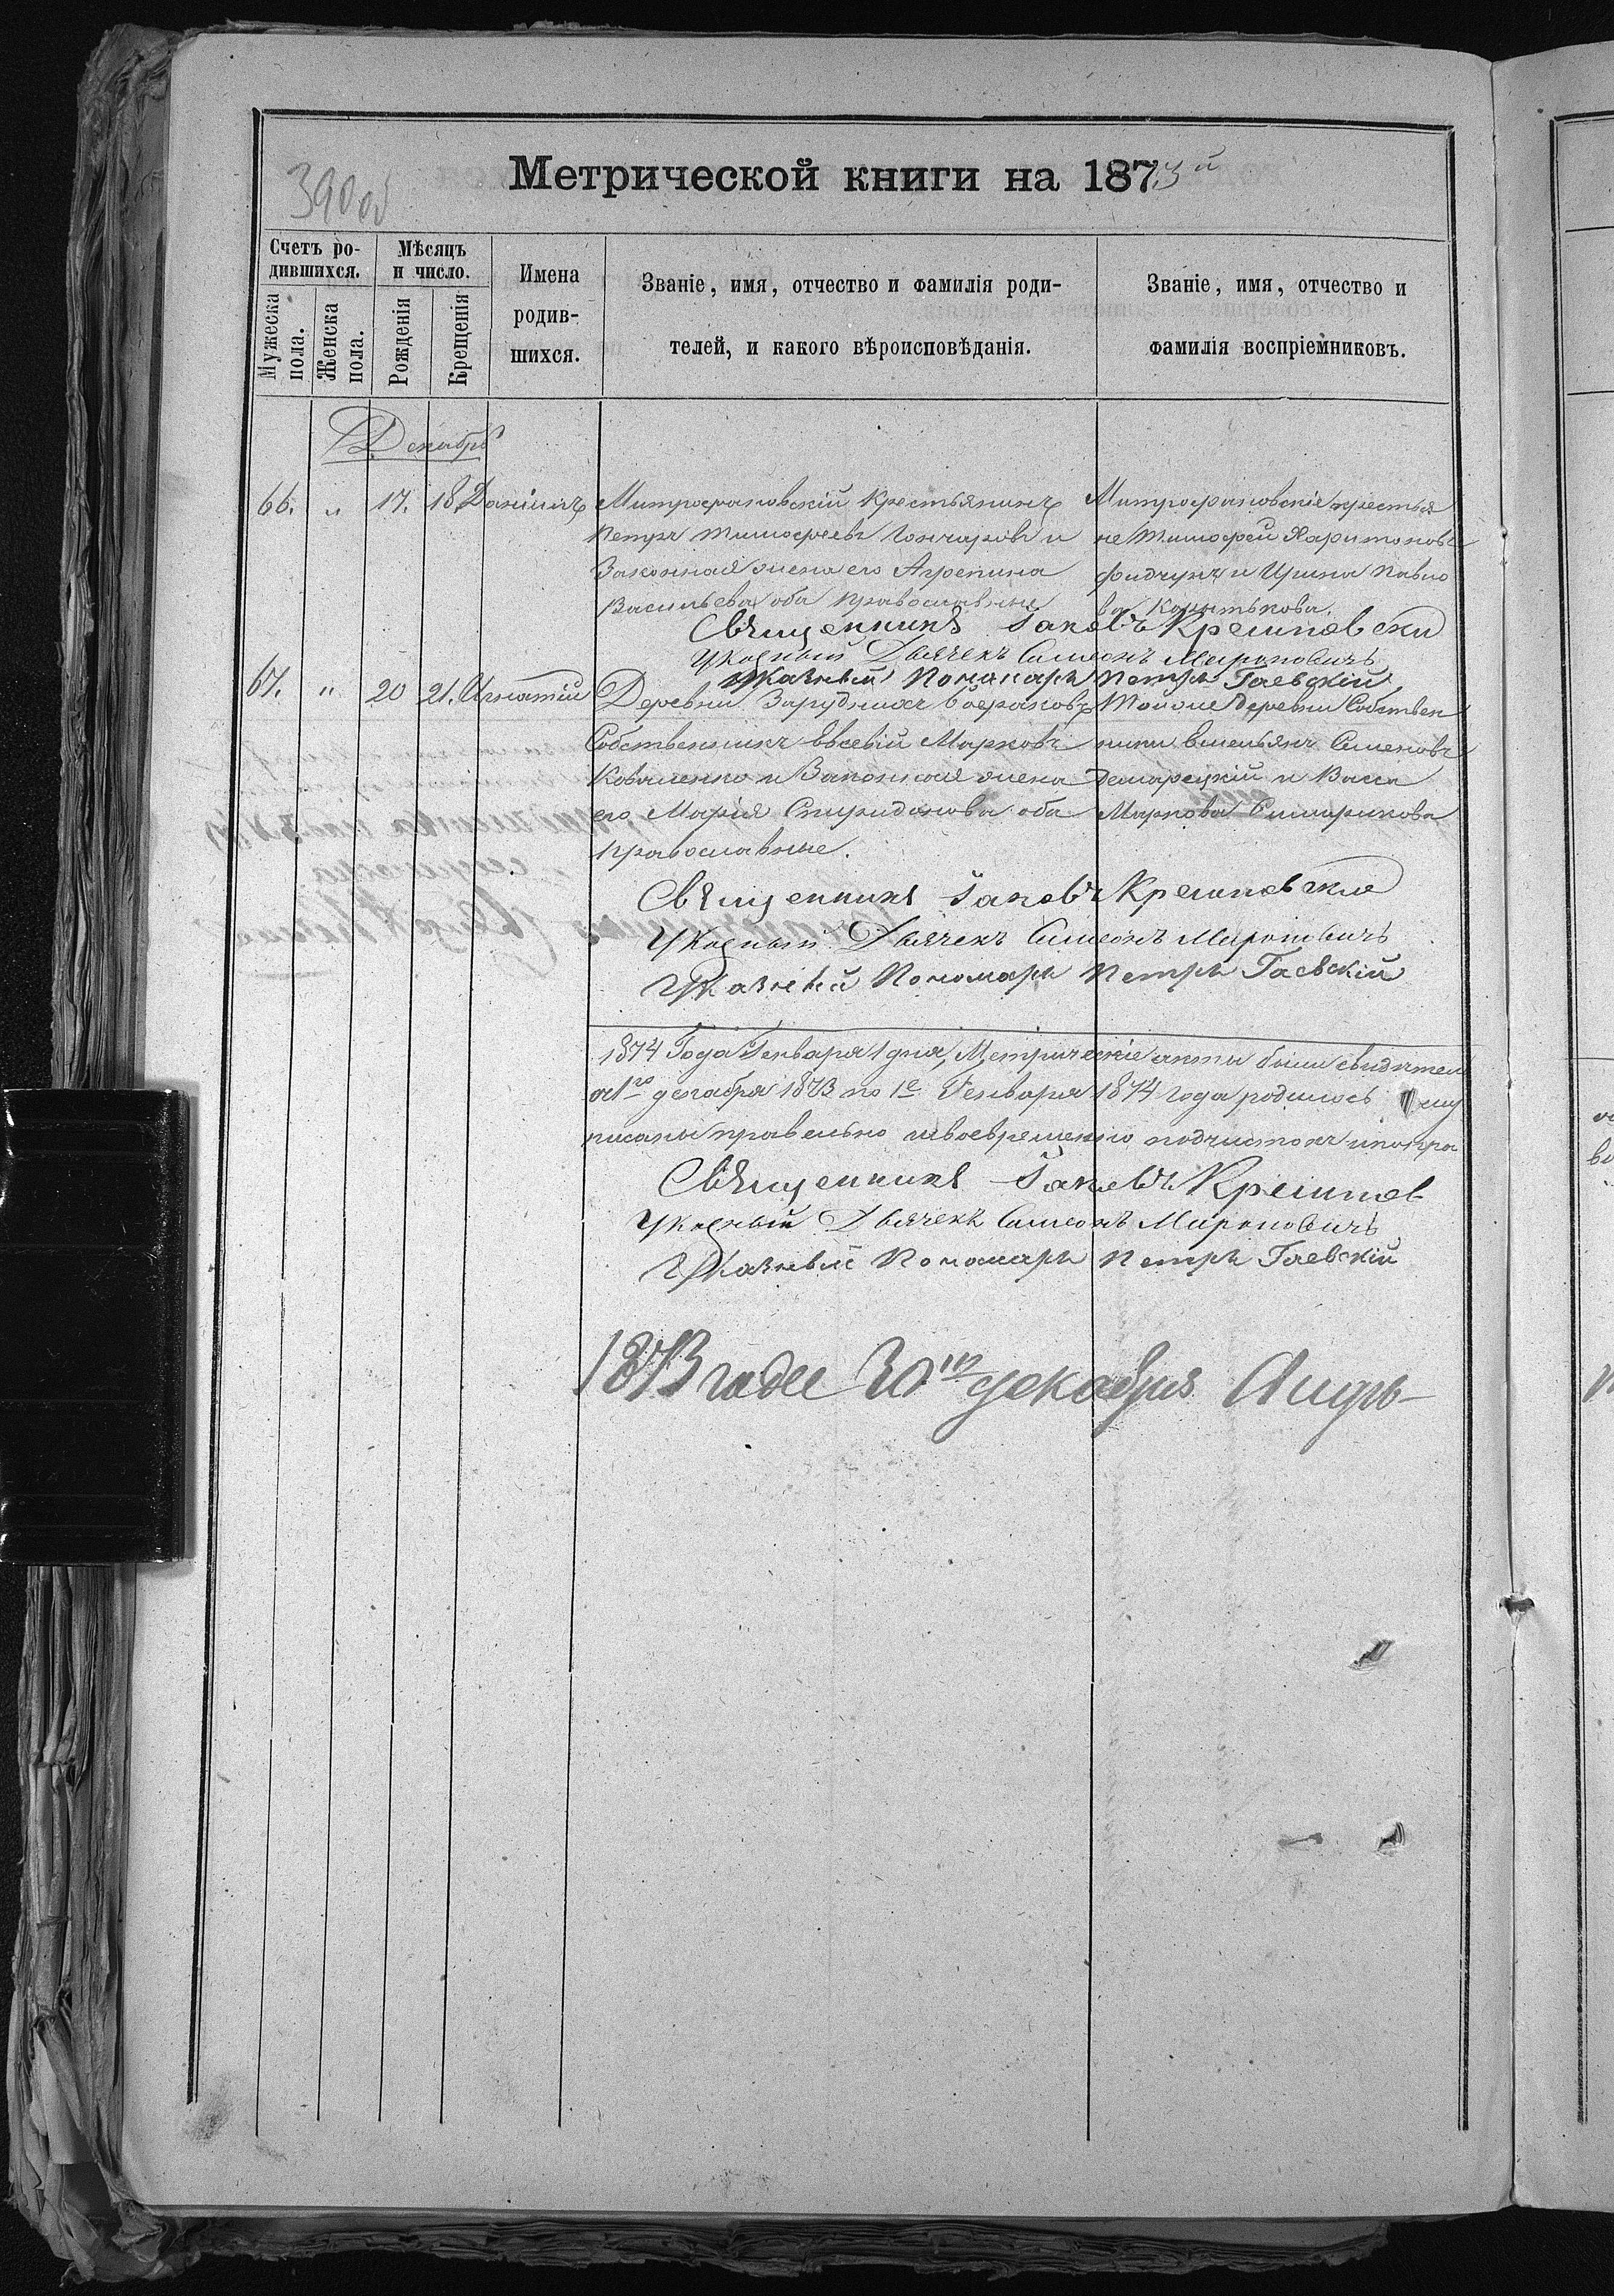 390 об
Метрической книги на 1873й
Счетъ ро-
дившихся.
Мѣсяцъ
и число.
Мужеска
пола.
Женска
пола.
Рожденія
Крещенія
Имена
родив-
шихся.
Званіе, имя, отчество и фамилія роди-
телей, и какого вѣроисповѣданія.
Званіе, имя, отчество и
фамилія воспріемниковъ.
Декабрь
66. „ 17. 18. Даніилъ Митрофановскій Крестьянинъ
Петръ Тимофеевъ Гончаровъ и
Законная жена его Агрепина
Васильева оба православные
Митрофановскіе крестья
не Тимофей Харитоновъ
и Ирина Павло
ва
Священникъ Іаковъ
Указный Дьячекъ Симеонъ Мироновичъ
Указный Пономарь Петръ Гаевскій
67. „ 20 21. Игнатій Деревни Зарудныхъ Боераковъ
Собственникъ Евсевій Марковъ
Коваленко и Законная жена
его Марія Спиридонова оба
православные.
Тойже деревни Собствен
ники Емельянъ Семеновъ
и Васса
Маркова
Священникъ Іаковъ
Указный Дьячекъ Симеонъ Мироновичъ
Указный Пономарь Петръ Гаевскій
1874 Года Генваря 1 дня, Метрическіе акты были свидѣтел
декабря 1873 по 1е Генваря 1874 года родилось муж
писаны правельно и своевременно подчистокъ и попра
Священникъ Іаковъ
Указный Дьячекъ Симеонъ Мироновичъ
Указный Пономарь Петръ Гаевскій
1873 года 30го декабря